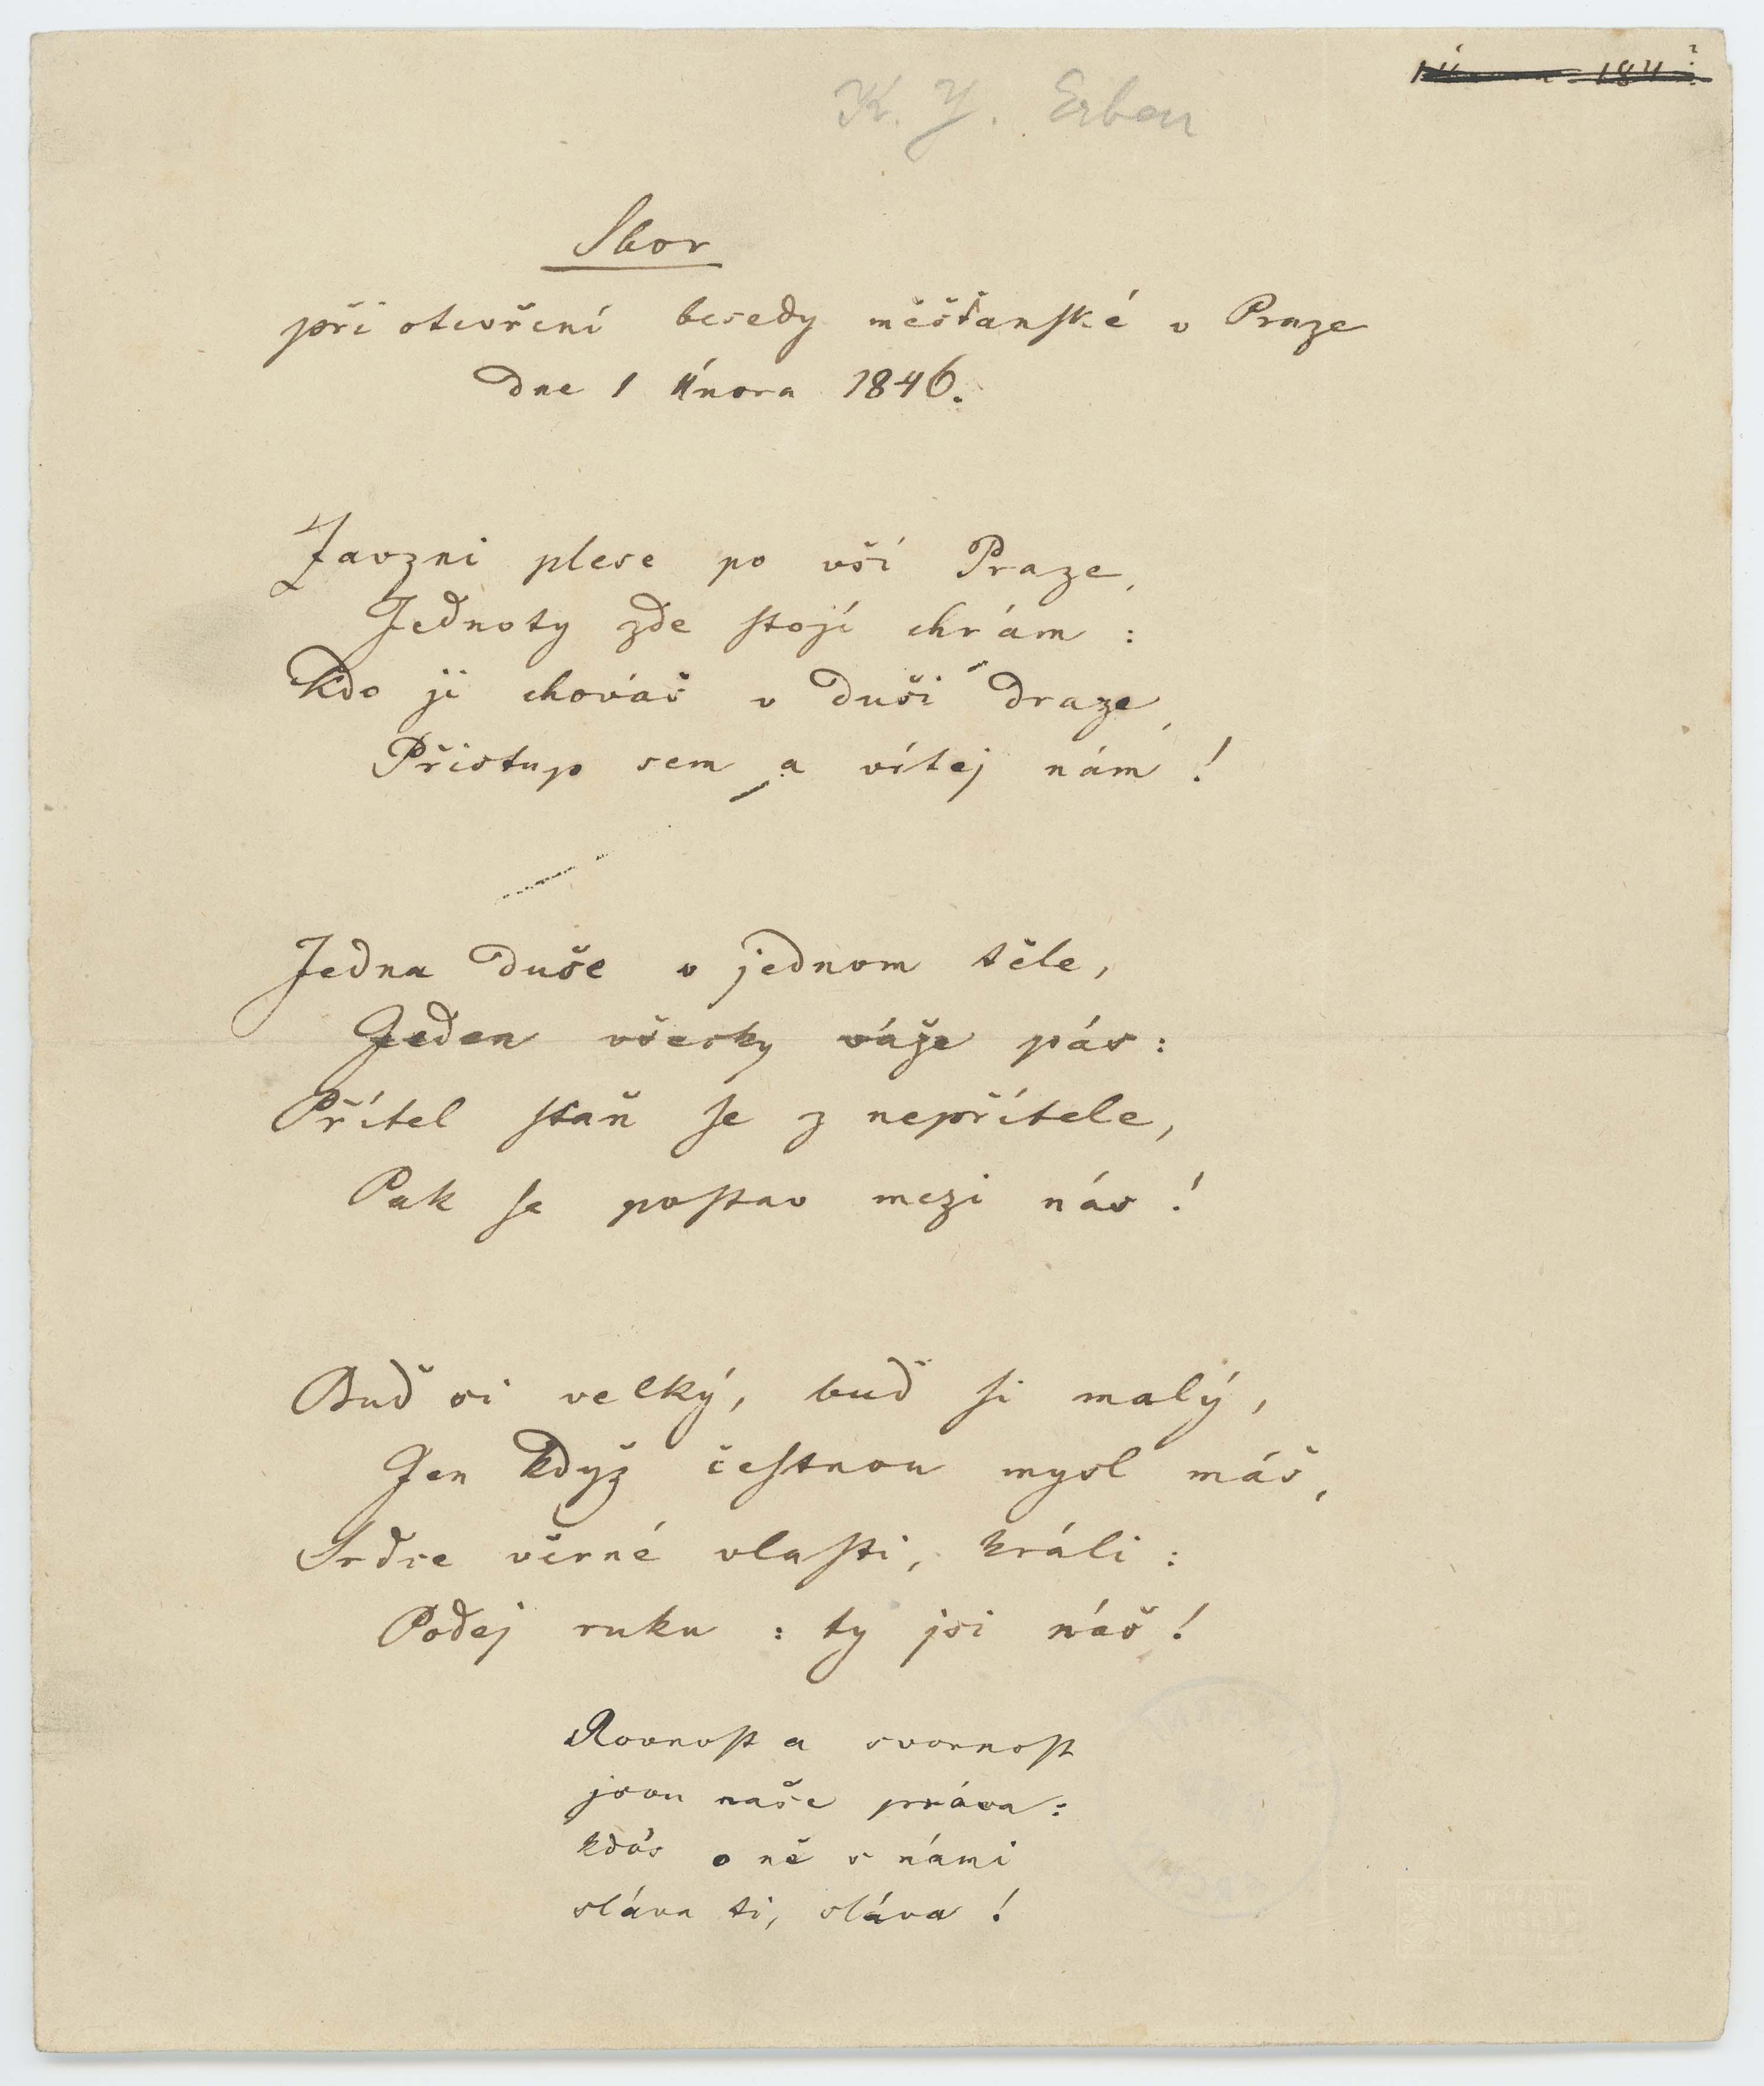 K. J. Erben
Sbor
při otevření besedy měšťanské v Praze
dne 1 února 1846.
Zavzni plese po vší Praze,
Jednoty zde stojí chrám :
Kdo ji chováš v duši draze,
Přistup sem, a vítej nám !
Jedna duše v jednom těle,
Jeden všecky váže pás :
Přítel staň se z nepřítele,
Pak se postav mezi nás !
Buď si velký, buď si malý,
Jen když čestnou mysl máš,
Srdce věrné vlasti, králi :
Podej ruku : ty jsi náš !
Rovnost a svornost
jsou naše práva :
kdo's o ně s námi
sláva ti, sláva !